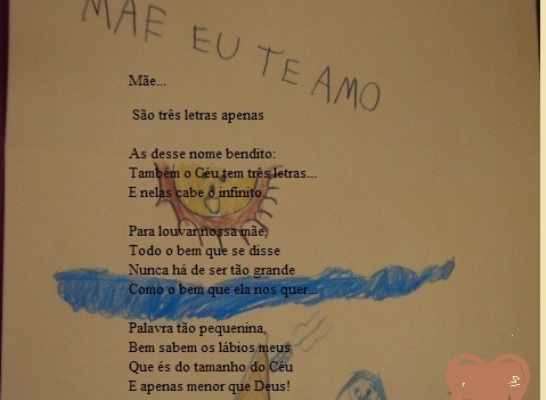 MÃE EU TE AMO
Mãe...
São três letras apenas
As desse nome bendito:
Também o Céu tem três letras...
E nelas cabe o infinito.
Para louvar nossa mãe,
Todo o bem que se disse
Nunca há de ser tão grande
Como o bem que ela nos quer...
Palavra tão pequenina,
Bem sabem os lábios meus
Que és do tamanho do Céu
E apenas menor que Deus!